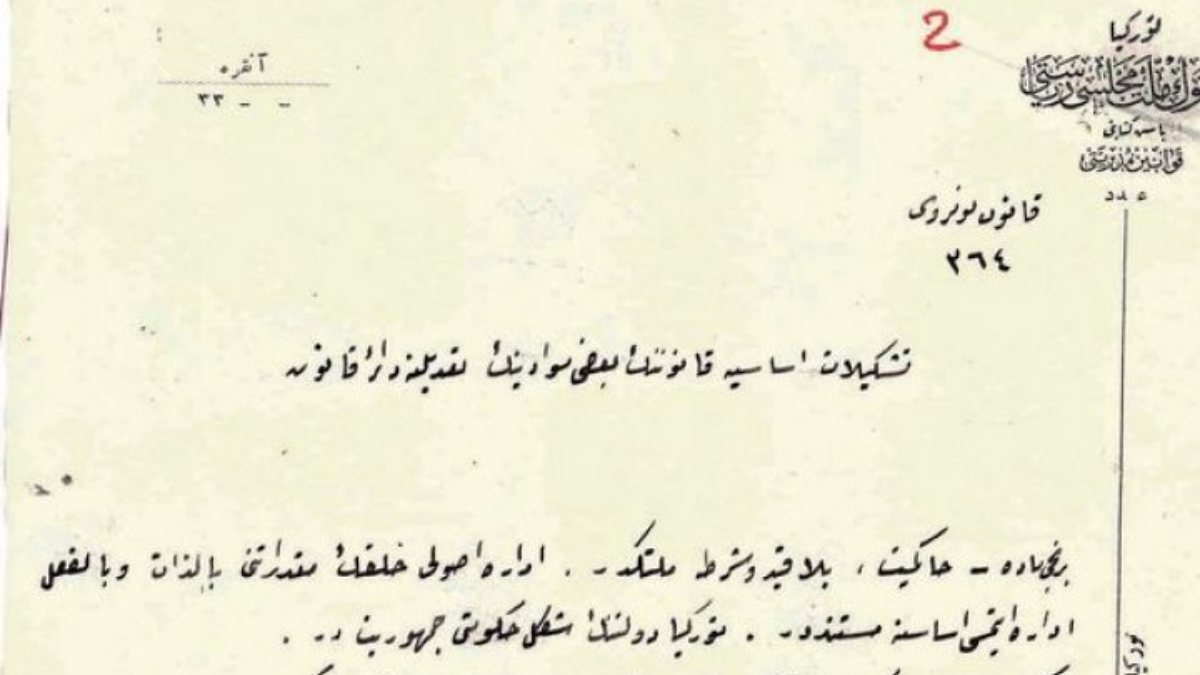 2
توركيا
بيوك ملت مجلسى رياستى
باش كتابتى
قوانين مديريتى
عدد
آنقره
٣٣ - -
قانون نومروسى
٣٦٤
تشكيلات اساسيه قانوننك بعض موادينك تعديلنه دائر قانون
برنجى ماده - حاكميت ، بلا قيد وشرط ملتكدر . اداره اصولى خلقك مقدراتنى بالذات وبالفعل
اداره ايتمسى اساسنه مستنددر . توركيا دولتنك شكل حكومتى جمهوريت در .